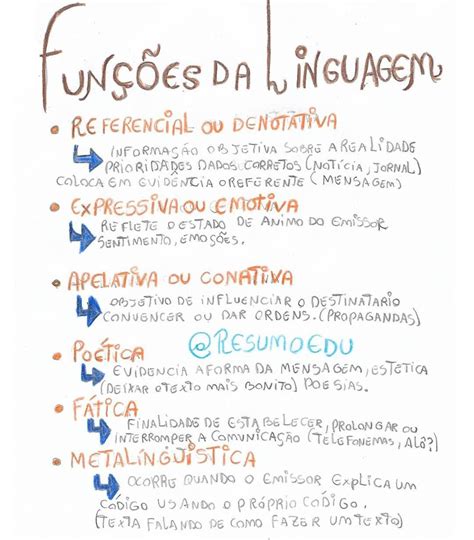 FUNÇÕES DA LINGUAGEM
• REFERENCIAL OU DENOTATIVA
INFORMAÇÃO OBJETIVA SOBRE A REALIDADE
PRIORIDADES DADOS CORRETOS (NOTÍCIA, JORNAL)
COLOCA EM EVIDÊNCIA O REFERENTE (MENSAGEM)
• EXPRESSIVA OU EMOTIVA
REFLETE O ESTADO DE ANIMO DO EMISSOR
SENTIMENTO, EMOÇÕES.
• APELATIVA OU CONATIVA
OBJETIVO DE INFLUENCIAR O DESTINATARIO
CONVENCER OU DAR ORDENS. (PROPAGANDAS)
• POÉTICA @RESUMOEDU
EVIDENCIA A FORMA DA MENSAGEM, ESTETICA
(DEIXAR O TEXTO MAIS BONITO) POESIAS.
• FÁTICA
FINALIDADE DE ESTABELECER, PROLONGAR OU
INTERROMPER A COMUNICAÇÃO (TELEFONEMAS, ALÔ?)
• METALINGUÍSTICA
OCORRE QUANDO O EMISSOR EXPLICA UM
CÓDIGO USANDO O PRÓPRIO CÓDIGO.
(TEXTA FALANDO DE COMO FAZER UM TEXTO)